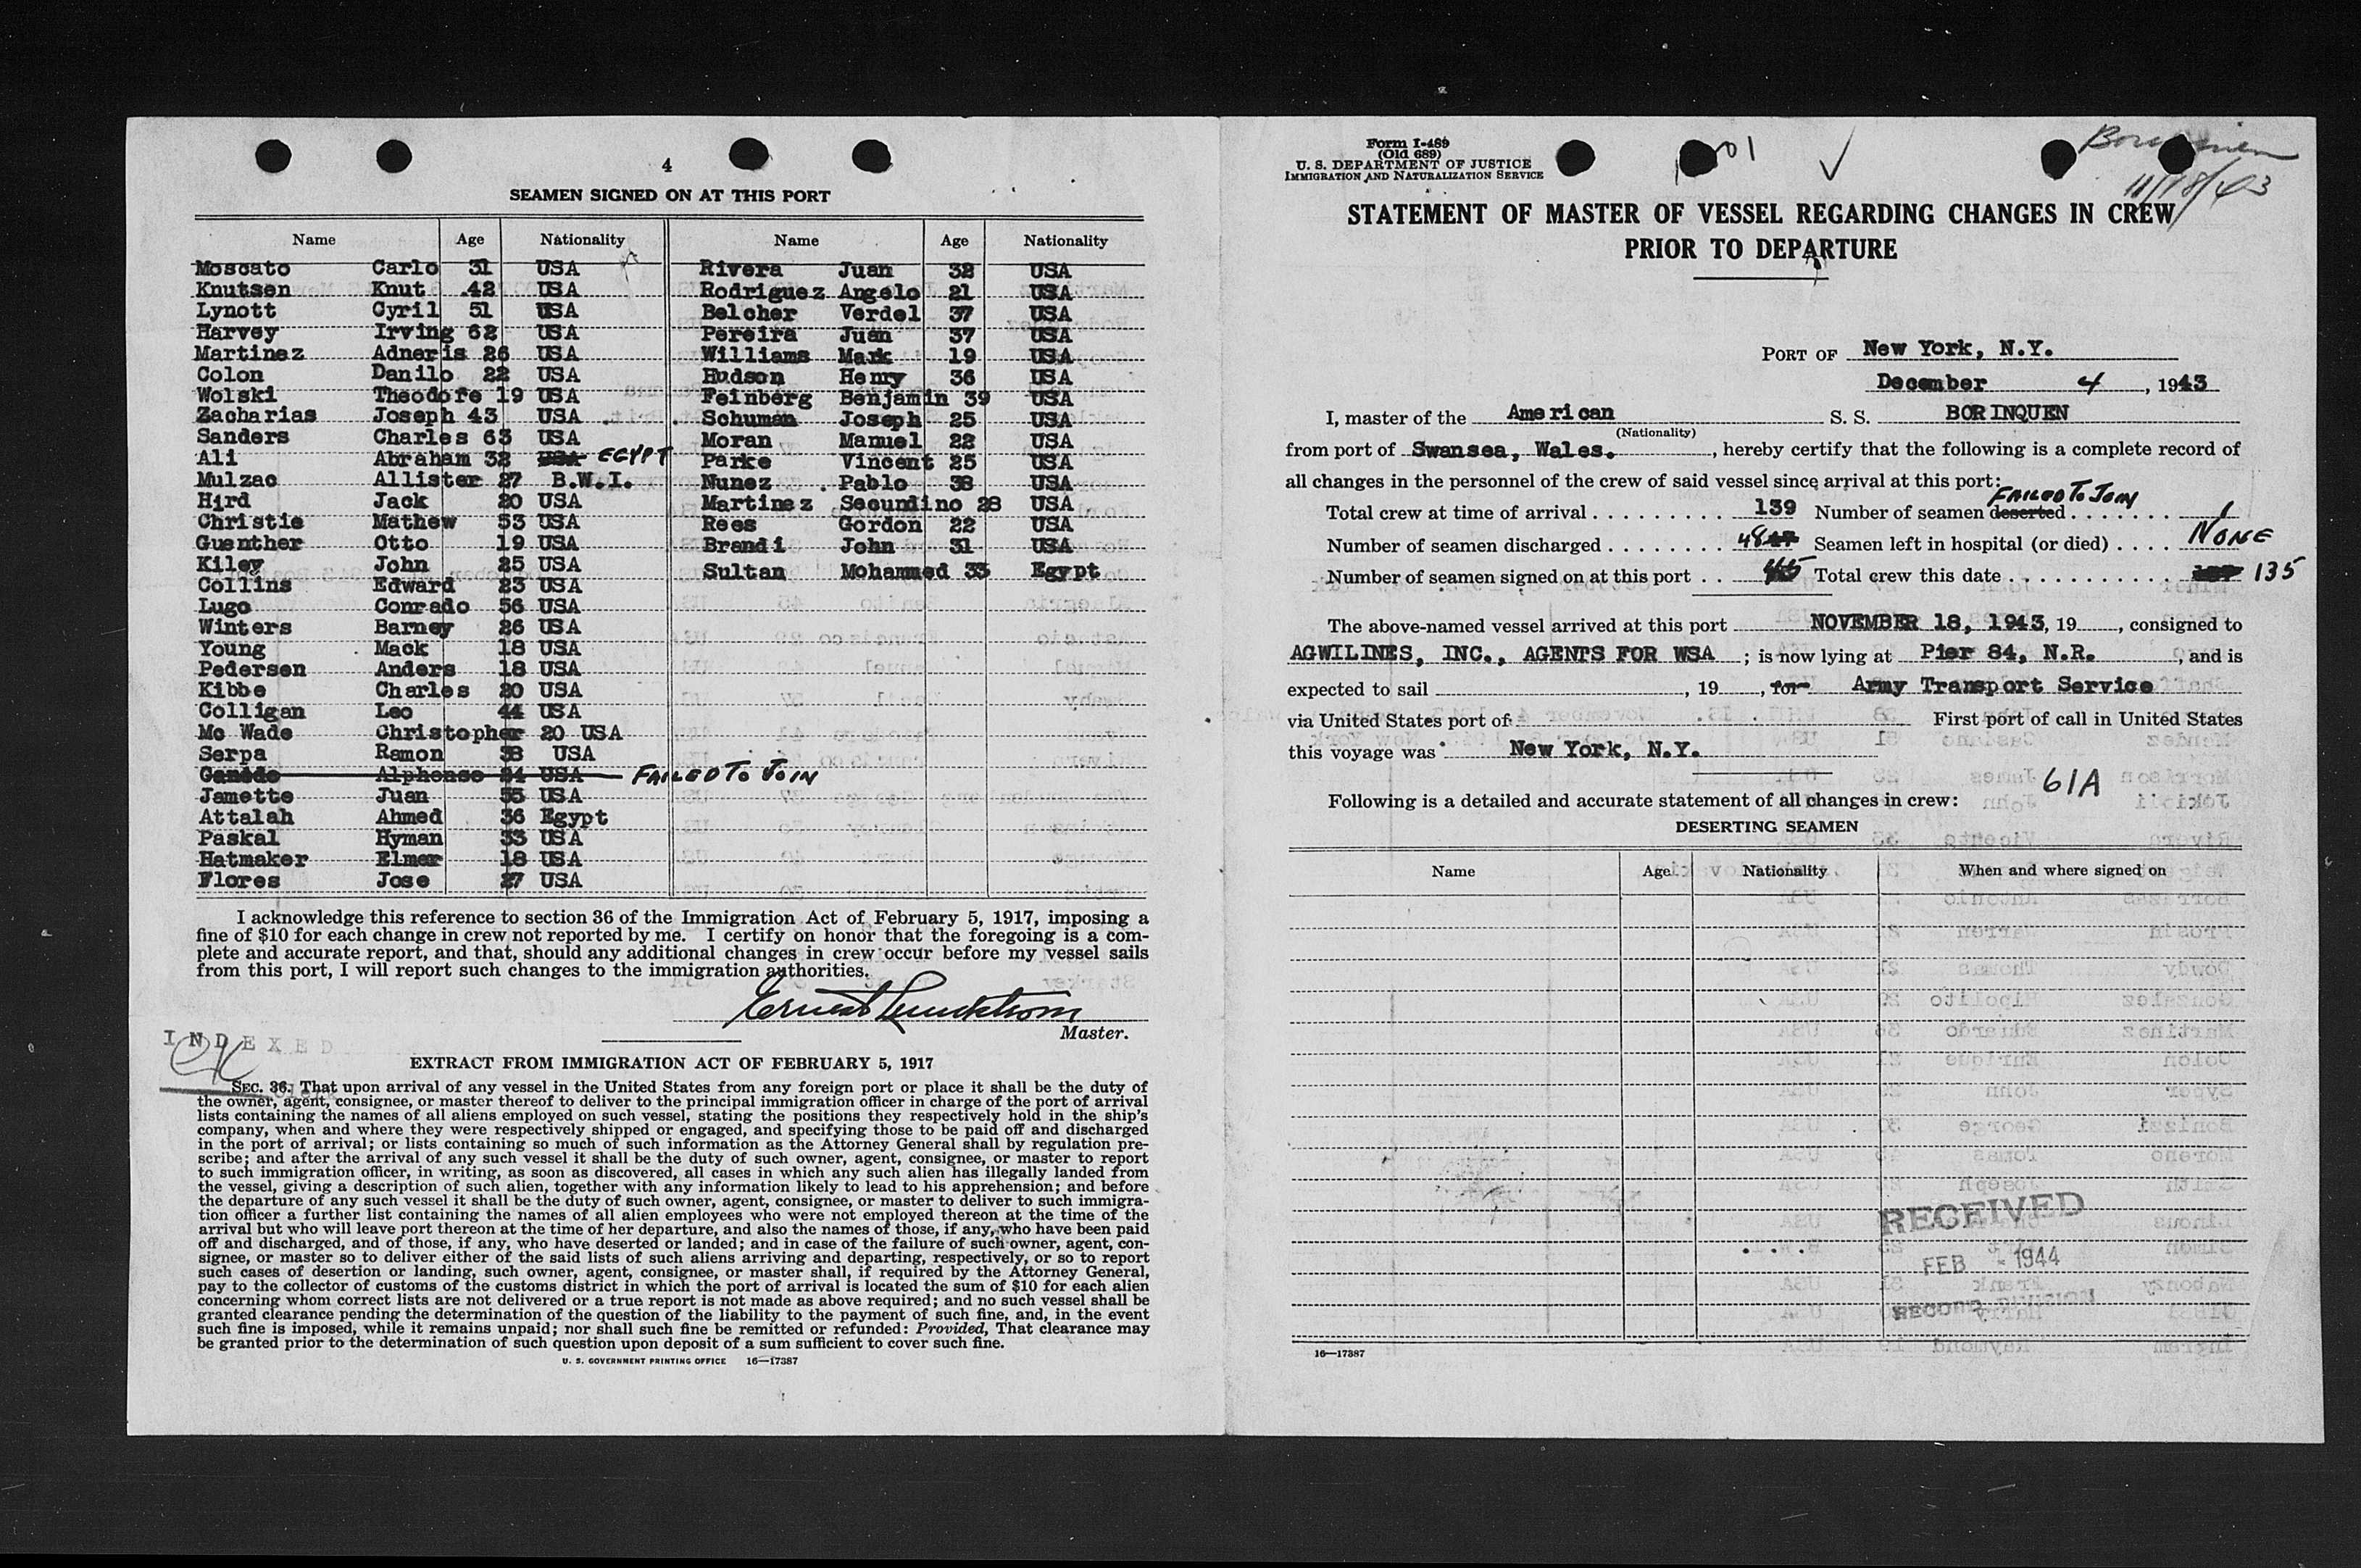 4
SEAMEN SIGNED ON AT THIS PORT
Name Age Nationality Name Age Nationality
Moscato Carlo 31 USA Rivera Juan 32 USA
Knutsen Knut 42 USA Rodriguez Angelo 21 USA
Lynott Cyril 51 USA Belcher Verdel 37 USA
Harvey Irving 62 USA Pereira Juan 37 USA
Martinez Adneris 26 USA Williams Mark 19 USA
Colon Danilo 22 USA Hudson Henry 36 USA
Wolski Theodore 19 USA Feinberg Benjamin 39 USA
Zacharias Joseph 43 USA Schuman Joseph 25 USA
Sanders Charles 63 USA Moran Manuel 22 USA
Ali Abraham 32 USA EGYPT Parke Vincent 25 USA
Mulzac Allister 27 B.W.I. Nunez Pablo 38 USA
Hird Jack 20 USA Martinez Secundino 28 USA
Christie Mathew 53 USA Rees Gordon 22 USA
Guenther Otto 19 USA Brandi John 31 USA
Kiley John 25 USA Sultan Mohammed 33 Egypt
Collins Edward 23 USA
Lugo Conrado 56 USA
Winters Barney 26 USA
Young Mack 18 USA
Pedersen Anders 18 USA
Kibbe Charles 20 USA
Colligan Leo 44 USA
Mc Wade Christopher 20 USA
Serpa Ramon 38 USA
Alphonso USA FAILED TO JOIN
Jamette Juan 55 USA
Attalah Ahmed 36 Egypt
Paskal Hyman 33 USA
Hatmaker Elmer 18 USA
Flores Jose 27 USA
I acknowledge this reference to section 36 of the Immigration Act of February 5, 1917, imposing a
fine of $10 for each change in crew not reported by me. I certify on honor that the foregoing is a com-
plete and accurate report, and that, should any additional changes in crew occur before my vessel sails
from this port, I will report such changes to the immigration authorities.
Ernest Lundstrom
Master.
INDEXED
EXTRACT FROM IMMIGRATION ACT OF FEBRUARY 5, 1917
SEC. 36. That upon arrival of any vessel in the United States from any foreign port or place it shall be the duty of
the owner, agent, consignee, or master thereof to deliver to the principal immigration officer in charge of the port of arrival
lists containing the names of all aliens employed on such vessel, stating the positions they respectively hold in the ship's
company, when and where they were respectively shipped or engaged, and specifying those to be paid off and discharged
in the port of arrival; or lists containing so much of such information as the Attorney General shall by regulation pre-
scribe; and after the arrival of any such vessel it shall be the duty of such owner, agent, consignee, or master to report
to such immigration officer, in writing, as soon as discovered, all cases in which any such alien has illegally landed from
the vessel, giving a description of such alien, together with any information likely to lead to his apprehension; and before
the departure of any such vessel it shall be the duty of such owner, agent, consignee, or master to deliver to such immigra-
tion officer a further list containing the names of all alien employees who were not employed thereon at the time of the
arrival but who will leave port thereon at the time of her departure, and also the names of those, if any, who have been paid
off and discharged, and of those, if any, who have deserted or landed; and in case of the failure of such owner, agent, con-
signee, or master so to deliver either of the said lists of such aliens arriving and departing, respectively, or so to report
such cases of desertion or landing, such owner, agent, consignee, or master shall, if required by the Attorney General,
pay to the collector of customs of the customs district in which the port of arrival is located the sum of $10 for each alien
concerning whom correct lists are not delivered or a true report is not made as above required; and no such vessel shall be
granted clearance pending the determination of the question of the liability to the payment of such fine, and, in the event
such fine is imposed, while it remains unpaid; nor shall such fine be remitted or refunded: Provided, That clearance may
be granted prior to the determination of such question upon deposit of a sum sufficient to cover such fine.
U. S. GOVERNMENT PRINTING OFFICE 16—17387
Form I-489
(Old 689)
U. S. DEPARTMENT OF JUSTICE
IMMIGRATION AND NATURALIZATION SERVICE
Borinquen
11/18/43
STATEMENT OF MASTER OF VESSEL REGARDING CHANGES IN CREW
PRIOR TO DEPARTURE
PORT OF New York, N.Y.
December 4, 1943
I, master of the American S. S. BORINQUEN
(Nationality)
from port of Swansea, Wales., hereby certify that the following is a complete record of
all changes in the personnel of the crew of said vessel since arrival at this port:
FAILED TO JOIN
Total crew at time of arrival 139 Number of seamen deserted 1
Number of seamen discharged 48 Seamen left in hospital (or died) NONE
Number of seamen signed on at this port 45 Total crew this date 135
The above-named vessel arrived at this port NOVEMBER 18, 1943, 19, consigned to
AGWILINES, INC., AGENTS FOR WSA; is now lying at Pier 84, N.R., and is
expected to sail , 19 , for Army Transport Service
via United States port of First port of call in United States
this voyage was New York, N.Y.
61A
Following is a detailed and accurate statement of all changes in crew:
DESERTING SEAMEN
Name Age Nationality When and where signed on
RECEIVED
FEB 1944
RECORD DIVISION
16—17387